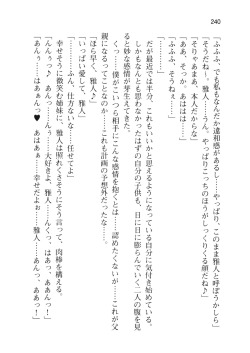 240
「ふふふ、でも私もなんだか違和感があるし……やっぱり、このまま雅人と呼ぼうかしら」
「そうだねー。雅人……うん。やっぱりこっちのほうがしっくりくる顔だね♪」
「そりゃあまあ、本人だからな」
「あら、そっか。あははは……」
「ふふふ、そうねぇ」
だが最近では半分、これもいいかと思っている自分に気付き始めている。
しかもどうかと思わなかったはずの自分の子供も、日に日に膨らんでいく二人の腹を見
ると妙な感情が芽生えてきた。
くっ、僕がこいつら相手にこんな感情を抱くとは……認めたくないが……これが父
親になるってことなのか……これも計画の予想外だった……。
「ほら早く、雅人♪」
「いっぱい愛して、雅人」
幸せそうに微笑む姉妹に、雅人は照れくさそうにそう言って、肉棒を構える。
「んんぅっ♪ あんっ……大好きよ、雅人……んくっ、はあっ、ああっ！」
「あんぅ……はぁぁんっ♥ あんっ……幸せだよぉ……雅人……あんっ、ああっ！」